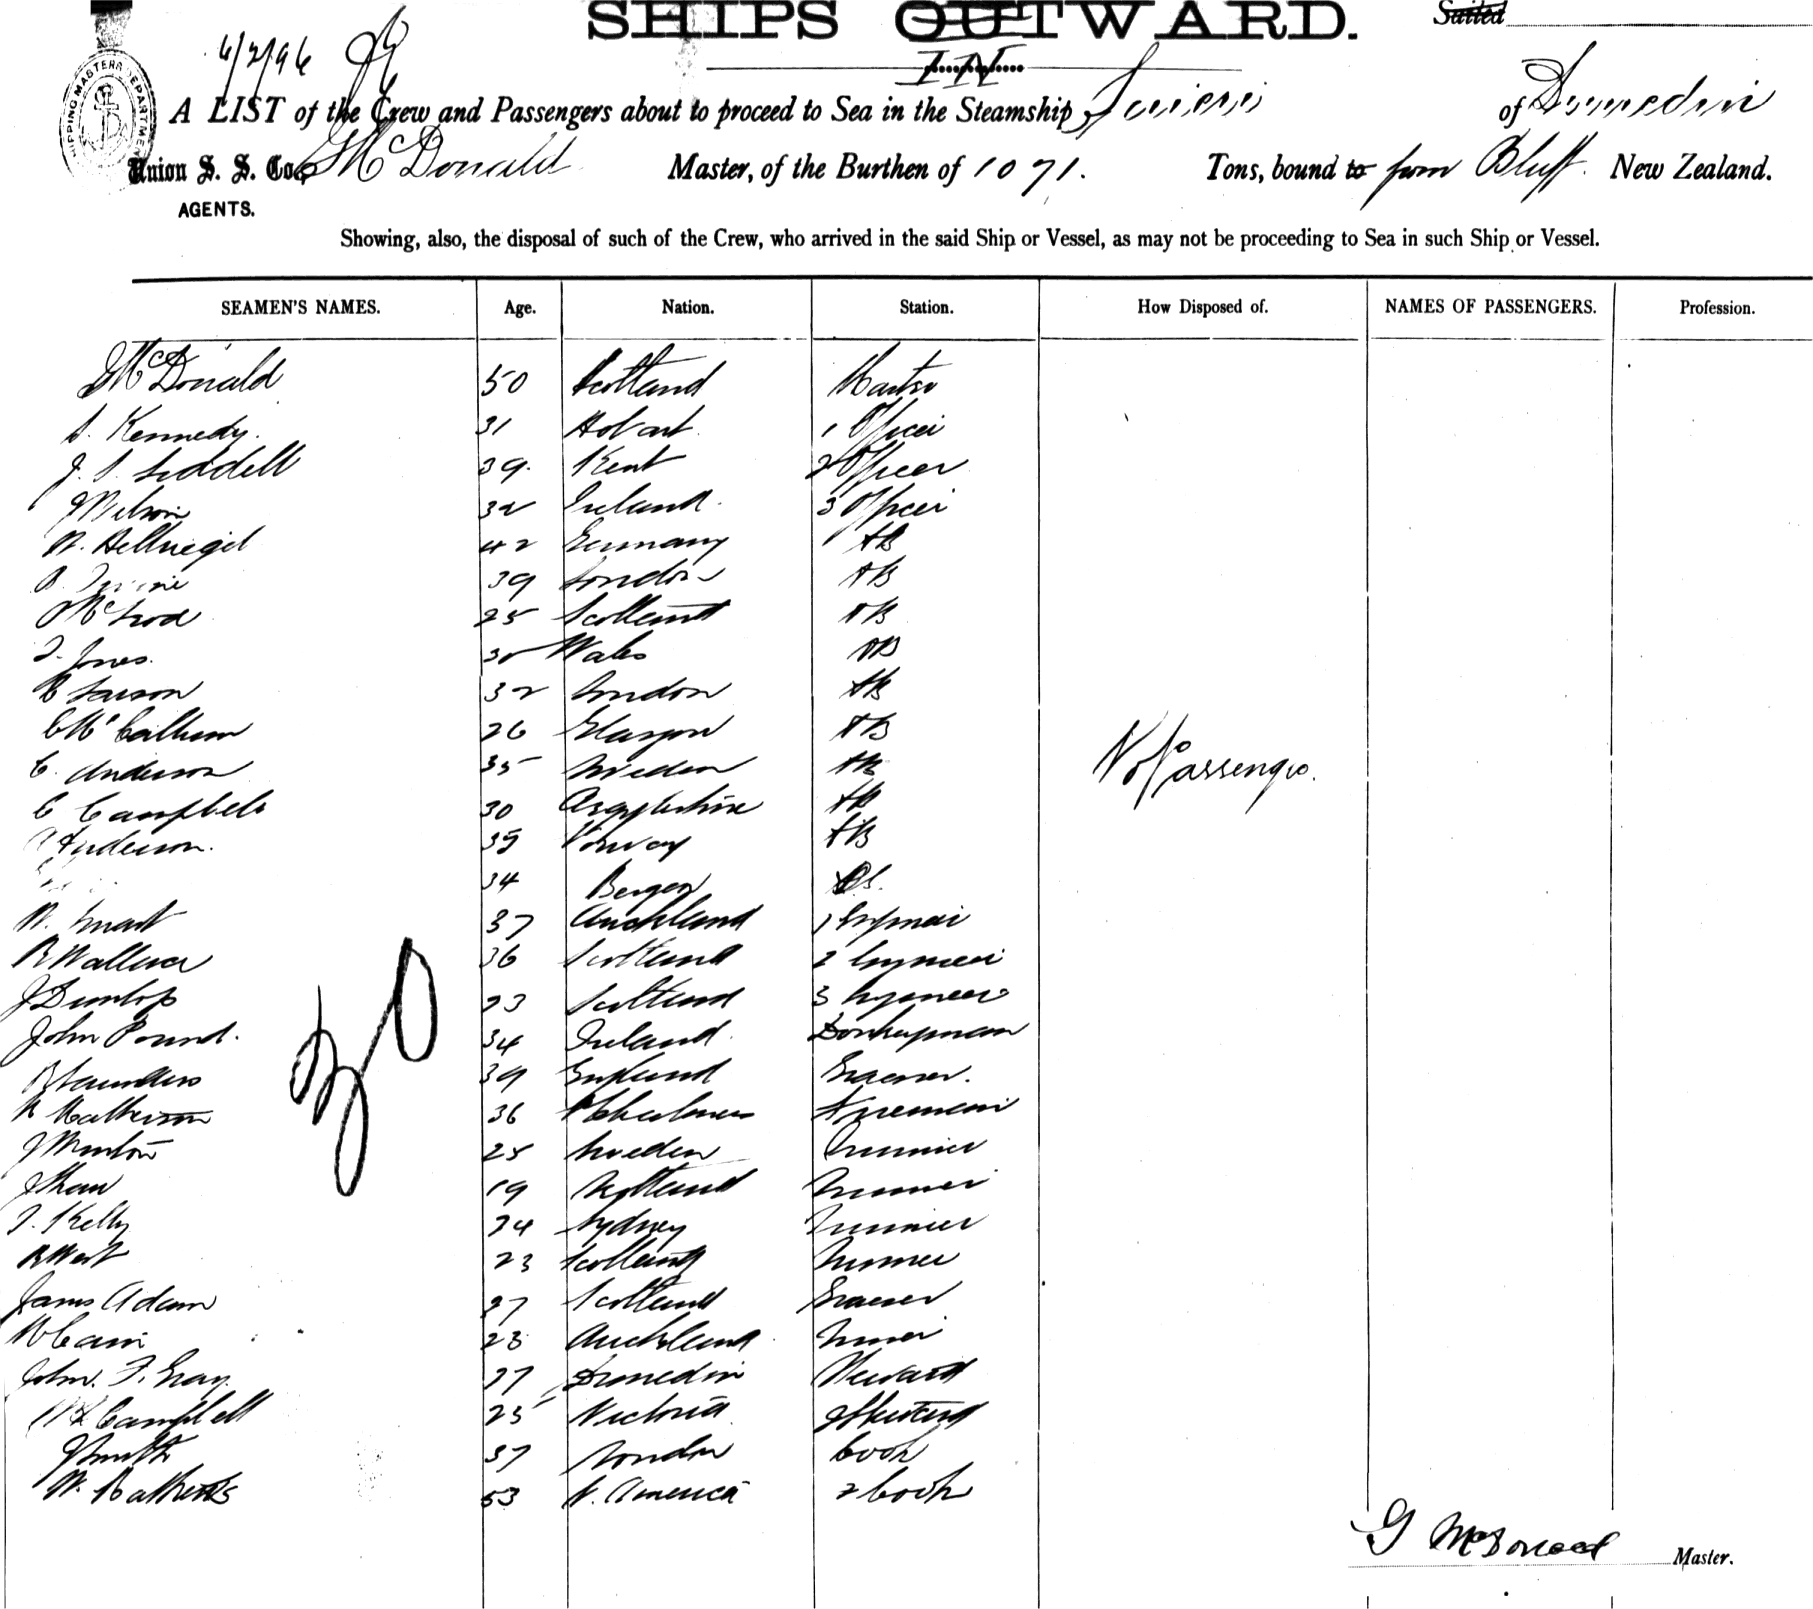 SHIPS OUTWARD.
Sailed
IN
6/2/96
SHIPPING MASTERS DEPARTMENT
A LIST of the Crew and Passengers about to proceed to Sea in the Steamship of Dunedin
Union S. S. Co., G McDonald Master, of the Burthen of 1071. Tons, bound to from Bluff. New Zealand.
AGENTS.
Showing, also, the disposal of such of the Crew, who arrived in the said Ship or Vessel, as may not be proceeding to Sea in such Ship or Vessel.
SEAMEN'S NAMES. Age. Nation. Station. How Disposed of. NAMES OF PASSENGERS. Profession.
G McDonald 50 Scotland Master
Kennedy. 31 Hobart. 1 Officer
J. S. Liddell 39. Kent 2 Officer
J Wilson 32 Ireland. 3 Officer
W. Hellriegel 42 Germany AB
39 London AB
25 Scotland AB
Jones. Wales AB
Larson 32 London AB
26 Glasgow AB
C. Anderson 35 Sweden AB
No Passengers.
C Campbell 30 Argyleshire AB
Anderson. 35 Norway AB
34 Bergen
W. Smart 37 Auckland 1 Engineer
R Wallace 36 Scotland 2 Engineer
J Dunlop 23 Scotland 3 Engineer
John Pound. 34 Ireland. Donkeyman
Saunders 39 England Greaser.
36 Fireman
25 Sweden Trimmer
J Shaw 19 Scotland Trimmer
Kelly 24 Sydney Trimmer
R West 23 Scotland Trimmer
James Adam 27 Scotland Greaser
23 Auckland Trimmer
John. F. Gray. 27 Dunedin Steward
Campbell 25 Victoria 2 Steward
30
J Smith 37 London Cook
W. 53 N. America 2 Cook
G McDonald Master.